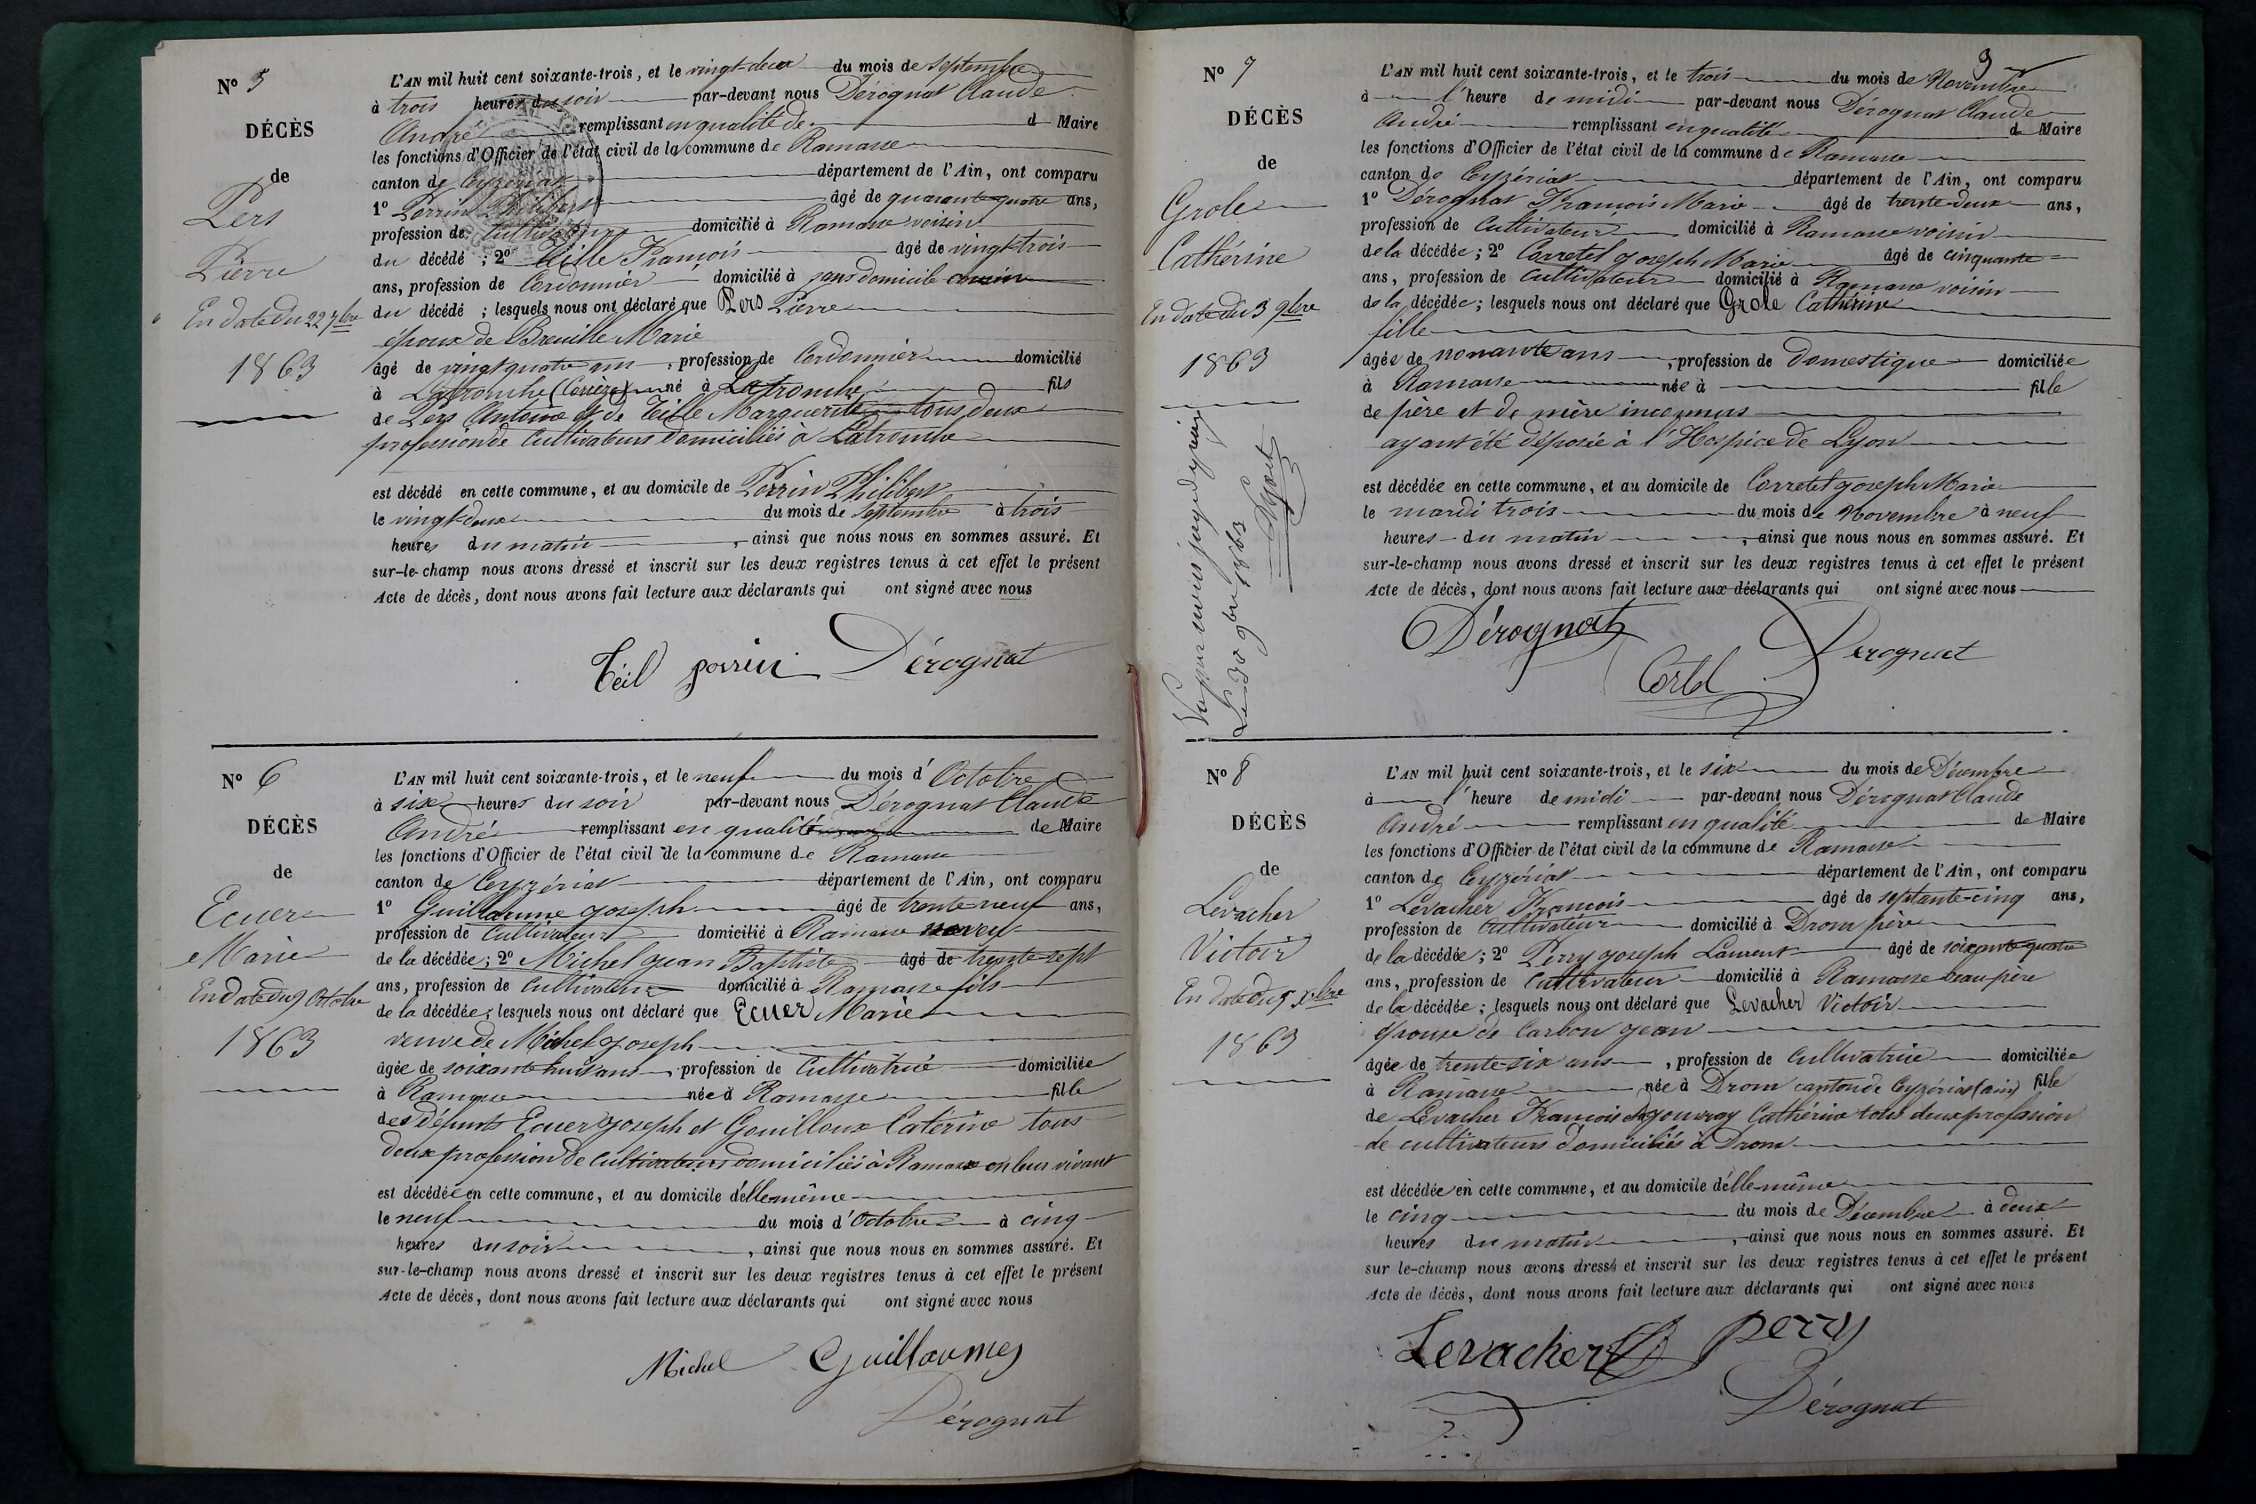 N° 5
DÉCÈS
de
Pers
Pierre
En date du 22 7bre
1863
L'AN mil huit cent soixante-trois, et le vingt-deux du mois de Septembre
à trois heures du soir par-devant nous Dérognat Claude
André remplissant en qualité de d Maire
les fonctions d'Officier de l'état civil de la commune de Ramasse
canton de Ceyzériat département de l'Ain, ont comparu
1° Perrin Philibert âgé de quarante-quatre ans,
profession de Cultivateur domicilié à Ramasse voisin
du décédé ; 2° Teille François âgé de vingt-trois
ans, profession de Cordonnier domicilié à sans domicile cousin
du décédé ; lesquels nous ont déclaré que Pers Pierre
époux de Breuille Marie
âgé de vingt quatre ans, profession de Cordonnier domicilié
à Latronche (Corrèze) né à Latronche fils
de Pers Antoine et de Teille Marguerite tous deux
profession de Cultivateurs domiciliés à Latronche
est décédé en cette commune, et au domicile de Perrin Philibert
le vingt-deux du mois de Septembre à trois
heures du matin, ainsi que nous nous en sommes assuré. Et
sur-le-champ nous avons dressé et inscrit sur les deux registres tenus à cet effet le présent
Acte de décès, dont nous avons fait lecture aux déclarants qui ont signé avec nous
Téil perrin Dérognat
N° 6
DÉCÈS
de
Ecuer
Marie
En date du 9 Octobre
1863
L'AN mil huit cent soixante-trois, et le neuf du mois d' Octobre
à six heures du soir par-devant nous Dérognat Claude
André remplissant en qualité de Maire
les fonctions d'Officier de l'état civil de la commune de Ramasse
canton de Ceyzériat département de l'Ain, ont comparu
1° Guillaume Joseph âgé de trente neuf ans,
profession de Cultivateur domicilié à Ramasse neveu
de la décédée ; 2° Michel Jean Baptiste âgé de trente sept
ans, profession de Cultivateur domicilié à Ramasse fils
de la décédée ; lesquels nous ont déclaré que Ecuer Marie
veuve de Michel Joseph
âgée de soixante huit ans, profession de Cultivatrice domiciliée
à Ramasse née à Ramasse fille
des défunts Ecuer Joseph et Gouilloux Caterine tous
deux profession de Cultivateurs domiciliés à Ramasse en leur vivant
est décédée en cette commune, et au domicile d'elle même
le neuf du mois d'Octobre à cinq
heures du soir, ainsi que nous nous en sommes assuré. Et
sur-le-champ nous avons dressé et inscrit sur les deux registres tenus à cet effet le présent
Acte de décès, dont nous avons fait lecture aux déclarants qui ont signé avec nous
Michel Guillaume
Dérognat
3
N° 7
DÉCÈS
de
Grole
Cathérine
En date du 3 9bre
1863
Vu par nous juge de paix
Le 30 9bre 1863
L'AN mil huit cent soixante-trois, et le trois du mois de Novembre
à l'heure de midi par-devant nous Dérognat Claude
André remplissant en qualité de Maire
les fonctions d'Officier de l'état civil de la commune de Ramasse
canton de Ceyzériat département de l'Ain, ont comparu
1° Dérognat François Marie âgé de trente-deux ans,
profession de Cultivateur domicilié à Ramasse voisin
de la décédée ; 2° Corretel Joseph Marie âgé de cinquante
ans, profession de Cultivateur domicilié à Ramasse voisin
de la décédée ; lesquels nous ont déclaré que Grole Cathérine
fille
âgée de nonante ans, profession de Domestique domiciliée
à Ramasse née à fille
de père et de mère inconnus
ayant été déposée à l'Hospice de Lyon
est décédée en cette commune, et au domicile de Corretel Joseph Marie
le mardi trois du mois de Novembre à neuf
heures du matin, ainsi que nous nous en sommes assuré. Et
sur-le-champ nous avons dressé et inscrit sur les deux registres tenus à cet effet le présent
Acte de décès, dont nous avons fait lecture aux déclarants qui ont signé avec nous
Dérognat
Dérognat
N° 8
DÉCÈS
de
Levacher
Victoir
En date du 5 xbre
1863
L'AN mil huit cent soixante-trois, et le six du mois de Décembre
à l'heure de midi par-devant nous Dérognat Claude
André remplissant en qualité de Maire
les fonctions d'Officier de l'état civil de la commune de Ramasse
canton de Ceyzériat département de l'Ain, ont comparu
1° Levacher François âgé de septante-cinq ans,
profession de Cultivateur domicilié à Drom père
de la décédée ; 2° Perry Joseph Laurent âgé de soixante-quatre
ans, profession de Cultivateur domicilié à Ramasse beau père
de la décédée ; lesquels nous ont déclaré que Levacher Victoir
épouse de Carbon Jean
âgée de trente-six ans, profession de Cultivatrice domiciliée
à Ramasse née à Drom canton de Ceyzériat (ain) fille
de Levacher François et Cathérine tous deux profession
de cultivateurs domiciliés à Drom
est décédée en cette commune, et au domicile d'elle-même
le cinq du mois de Décembre à deux
heures du matin, ainsi que nous nous en sommes assuré. Et
sur le-champ nous avons dressé et inscrit sur les deux registres tenus à cet effet le présent
Acte de décès, dont nous avons fait lecture aux déclarants qui ont signé avec nous
Levacher perry
Dérognat